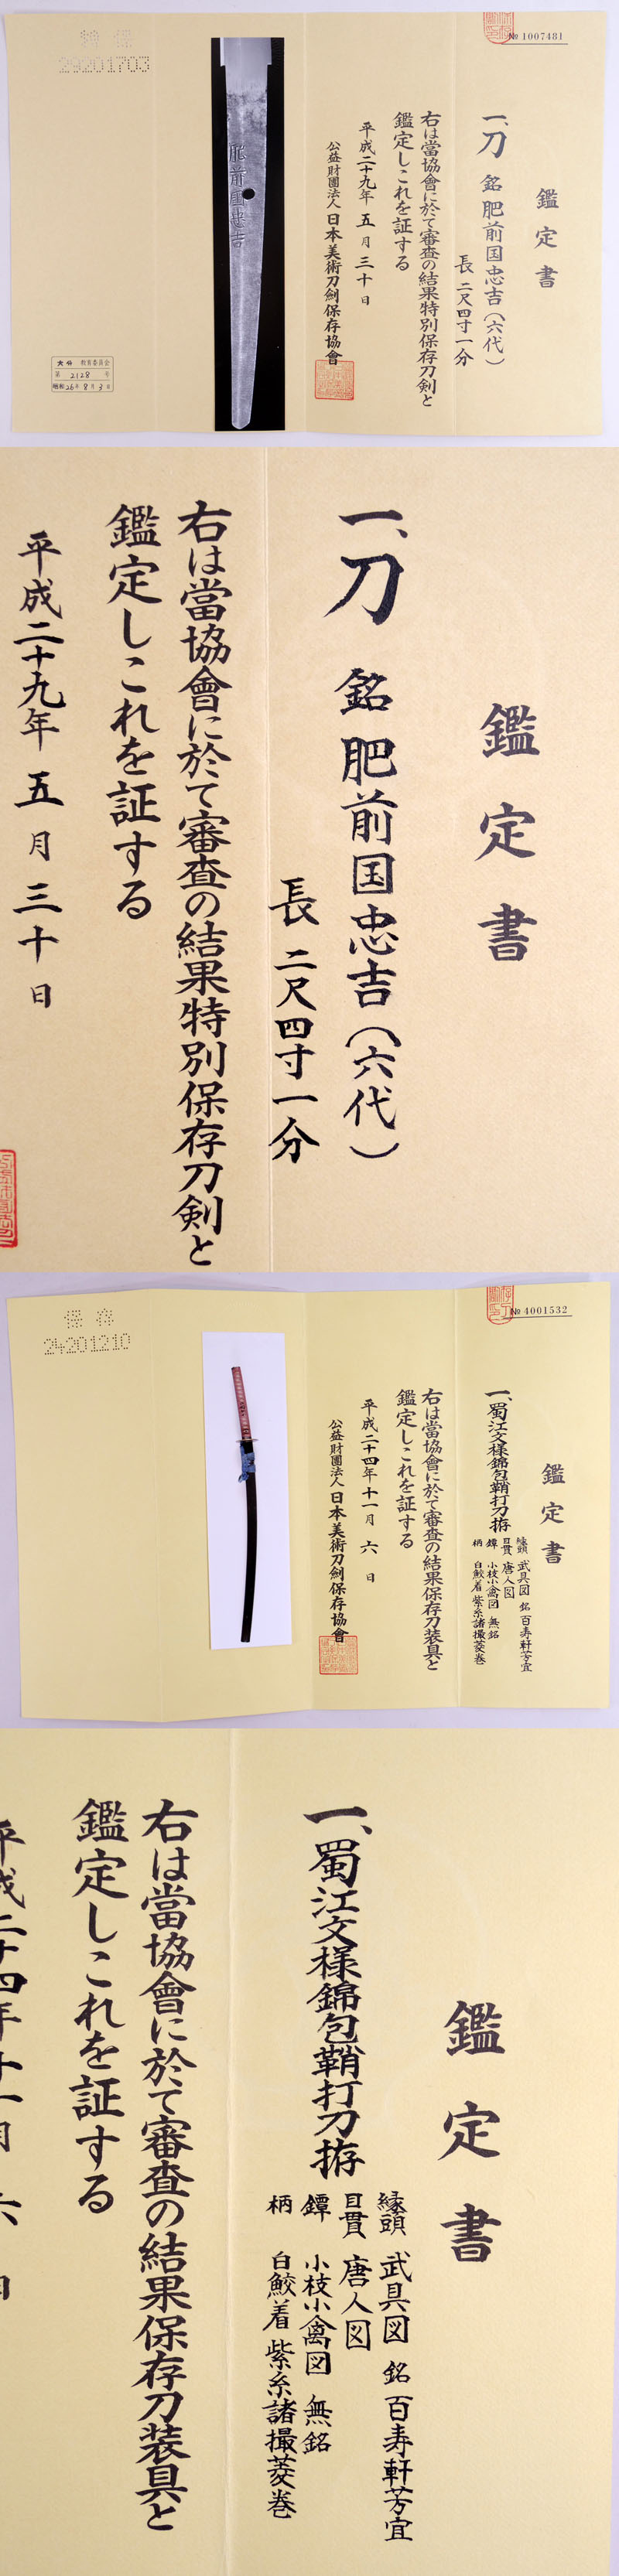 № 1007481
鑑定書
一、刀 銘 肥前国忠吉（六代）
長 二尺四寸一分
右は當協會に於て審査の結果特別保存刀剣と
鑑定しこれを証する
平成二十九年 五 月 三十 日
公益財團法人 日本美術刀劍保存協會
肥前国忠吉
特 保
29201703
教育委員会
第 2128 号
昭和26年8月3日
鑑定書
一、刀 銘 肥前国忠吉（六代）
長 二尺四寸一分
右は當協會に於て審査の結果特別保存刀剣と
鑑定しこれを証する
平成二十九年 五 月 三十 日
№ 4001532
鑑定書
一、蜀江文様錦包鞘打刀拵
縁頭 武具図 銘 百寿軒芳宜
目貫 唐人図
鐔 小枝小禽図 無銘
柄 白鮫着 紫糸諸撮菱巻
右は當協會に於て審査の結果保存刀装具と
鑑定しこれを証する
平成二十四年 十一月 六 日
公益財團法人 日本美術刀劍保存協會
保 存
24201210
鑑定書
一、蜀江文様錦包鞘打刀拵
縁頭 武具図 銘 百寿軒芳宜
目貫 唐人図
鐔 小枝小禽図 無銘
柄 白鮫着 紫糸諸撮菱巻
右は當協會に於て審査の結果保存刀装具と
鑑定しこれを証する
平成二十四年 十一月 六 日